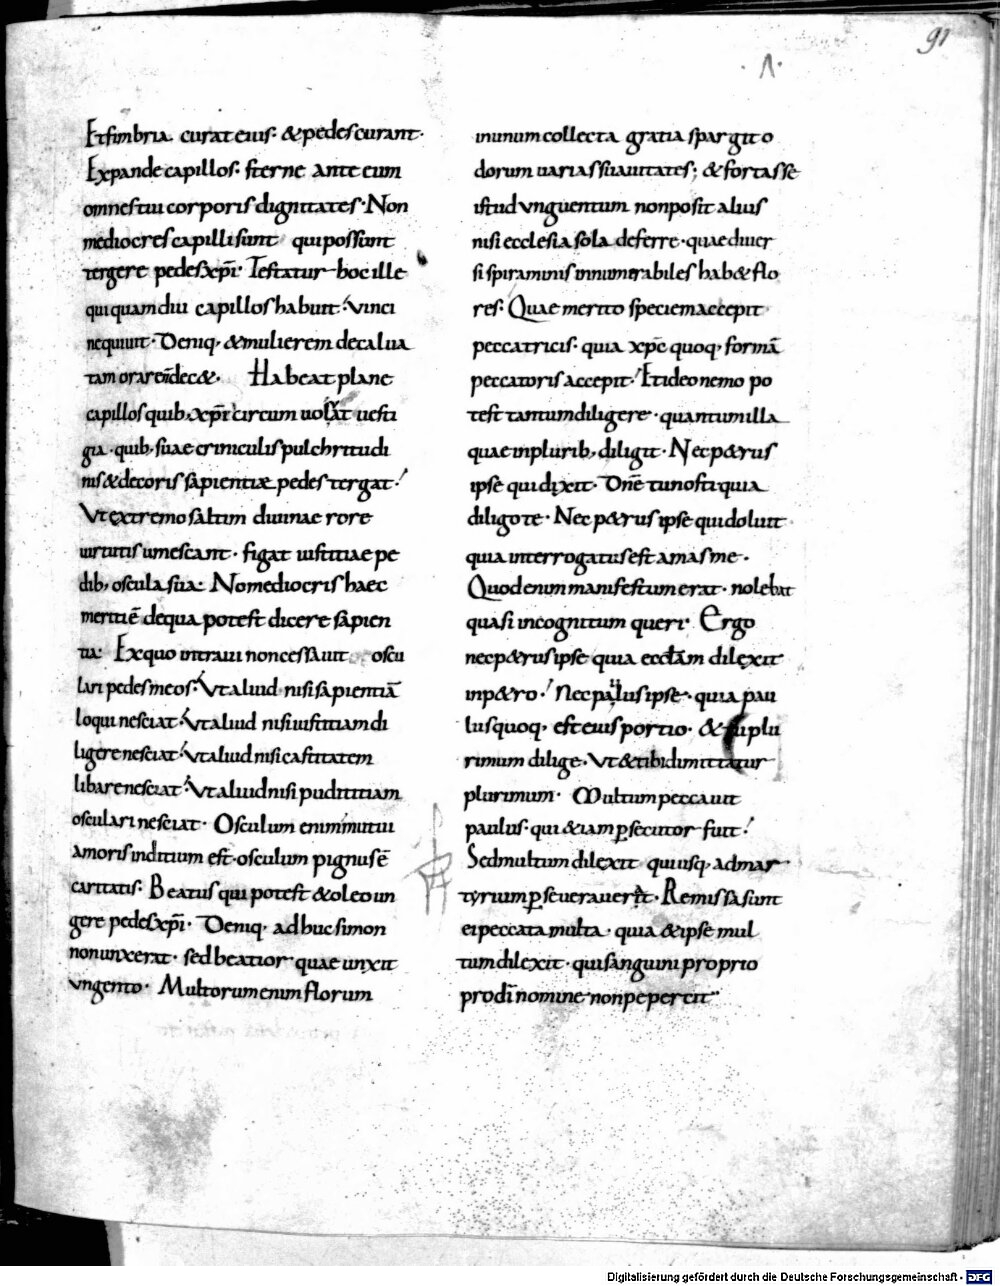 91
Et fimbria curat eius· & pedes curant·
Expande capillos· sterne ante eum
omnes tui corporis dignitates· Non
mediocres capilli sunt qui possunt
tergere pedes xp̄i· Testatur hoc ille
qui quamdiu capillos habuit· vinci
nequiuit· Deniq, & mulierem decalua
tam orare n̄ dec&· Habeat plane
capillos quib, xp̄i circum uoluat uesti
gia· quib, suae criniculis pulchritudi
nis & decoris sapientiae pedes tergat·
Vt extremo saltim diuinae rore
uirtutis umescant· figat iustitiae pe
dib, oscula sua· No mediocris haec
meriti ē de qua potest dicere sapien
tia· Ex quo intraui non cessauit oscu
lari pedes meos· Vt aliud nisi sapientiā
loqui nesciat· Vt aliud nisi iustitiam di
ligere nesciat· Vt aliud nisi castitatem
libare nesciat· Vt aliud nisi pudititiam
osculari nesciat· Osculum enim mutui
amoris inditium est· osculum pignus ē
caritatis· Beatus qui potest & oleo un
gere pedes xp̄i· Deniq, adhuc simon
non unxerat· sed beatior quae unxit
vngento· Multorum enim florum
in unum collecta gratia spargit o
dorum uarias suauitates· & fortasse
istud vnguentum non possit alius
nisi ecclesia sola deferre· quae diuer
si spiraminis innumerabiles hab& flo
res· Quae merito speciem accepit
peccatricis· quia xp̄c quoq, formā
peccatoris accepit· Et ideo nemo po
test tantum diligere· quantum illa
quae in plurib, diligit· Nec p&rus
ipse qui dixit· Dn̄e tu nosti quia
diligo te· Nec p&rus ipse qui doluit
quia interrogatus est amas me·
Quod enim manifestum erat· nolebat
quasi incognitum queri· Ergo
nec p&rus ipse quia eccl̄am dilexit
in p&ro· Nec paulus ipse· quia pau
lus quoq, est eius portio· & tu plu
rimum dilige· Vt & tibi dimittatur
plurimum· Multum peccauit
paulus· qui & iam p̱secutor fuit·
Sed multum dilexit quiusq, ad mar
tyrium p̱seuerauerit· Remissa sunt
ei peccata multa· quia & ipse mul
tum dilexit· qui sanguini proprio
pro dī nomine non pepercit·
Digitalisierung gefördert durch die Deutsche Forschungsgemeinschaft - DFG